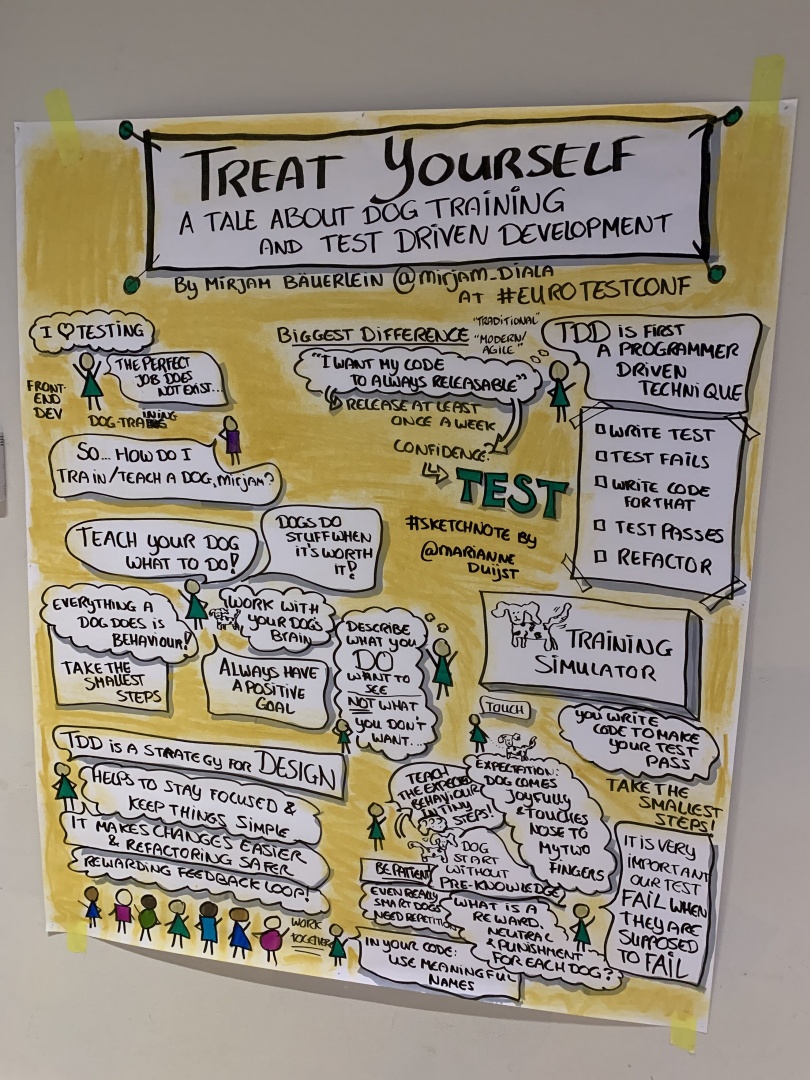 TREAT YOURSELF
A TALE ABOUT DOG TRAINING
AND TEST DRIVEN DEVELOPMENT
BY MIRJAM BÄUERLEIN @MIRJAM_DIALA
AT #EUROTESTCONF
I ♥ TESTING
FRONT-
END
DEV
THE PERFECT
JOB DOES
NOT EXIST...
DOG TRAINING
SO... HOW DO I
TRAIN/TEACH A DOG, MIRJAM?
BIGGEST DIFFERENCE
"TRADITIONAL"
"MODERN/
AGILE"
"I WANT MY CODE
TO ALWAYS RELEASABLE"
RELEASE AT LEAST
ONCE A WEEK
CONFIDENCE?
TEST
#SKETCHNOTE BY
@MARIANNE
DUIJST
TDD IS FIRST
A PROGRAMMER
DRIVEN
TECHNIQUE
WRITE TEST
TEST FAILS
WRITE CODE
FOR THAT
TEST PASSES
REFACTOR
TEACH YOUR DOG
WHAT TO DO!
DOGS DO
STUFF WHEN
IT'S WORTH
IT!
EVERYTHING A
DOG DOES IS
BEHAVIOUR!
TAKE THE
SMALLEST
STEPS
WORK WITH
YOUR DOG'S
BRAIN
ALWAYS HAVE
A POSITIVE
GOAL
DESCRIBE
WHAT YOU
DO
WANT TO
SEE
NOT WHAT
YOU DON'T
WANT...
TRAINING
SIMULATOR
TOUCH
YOU WRITE
CODE TO MAKE
YOUR TEST
PASS
TAKE THE
SMALLEST
STEPS!
EXPECTATION:
DOG COMES
JOYFULLY
& TOUCHES
NOSE TO
MY TWO
FINGERS
IT IS VERY
IMPORTANT
OUR TEST
FAIL WHEN
THEY ARE
SUPPOSED
TO FAIL
TDD IS A STRATEGY FOR DESIGN
HELPS TO STAY FOCUSED &
KEEP THINGS SIMPLE
IT MAKES CHANGES EASIER
& REFACTORING SAFER
REWARDING FEEDBACK LOOP!
WORK
TOGETHER
TEACH
THE EXPECTED
BEHAVIOUR
IN TINY
STEPS!
DOG
START
WITHOUT
PRE-KNOWLEDGE
BE PATIENT
EVEN REALLY
SMART DOGS
NEED REPETITION
WHAT IS A
REWARD,
NEUTRAL
& PUNISHMENT
FOR EACH DOG?
IN YOUR CODE:
USE MEANINGFUL
NAMES